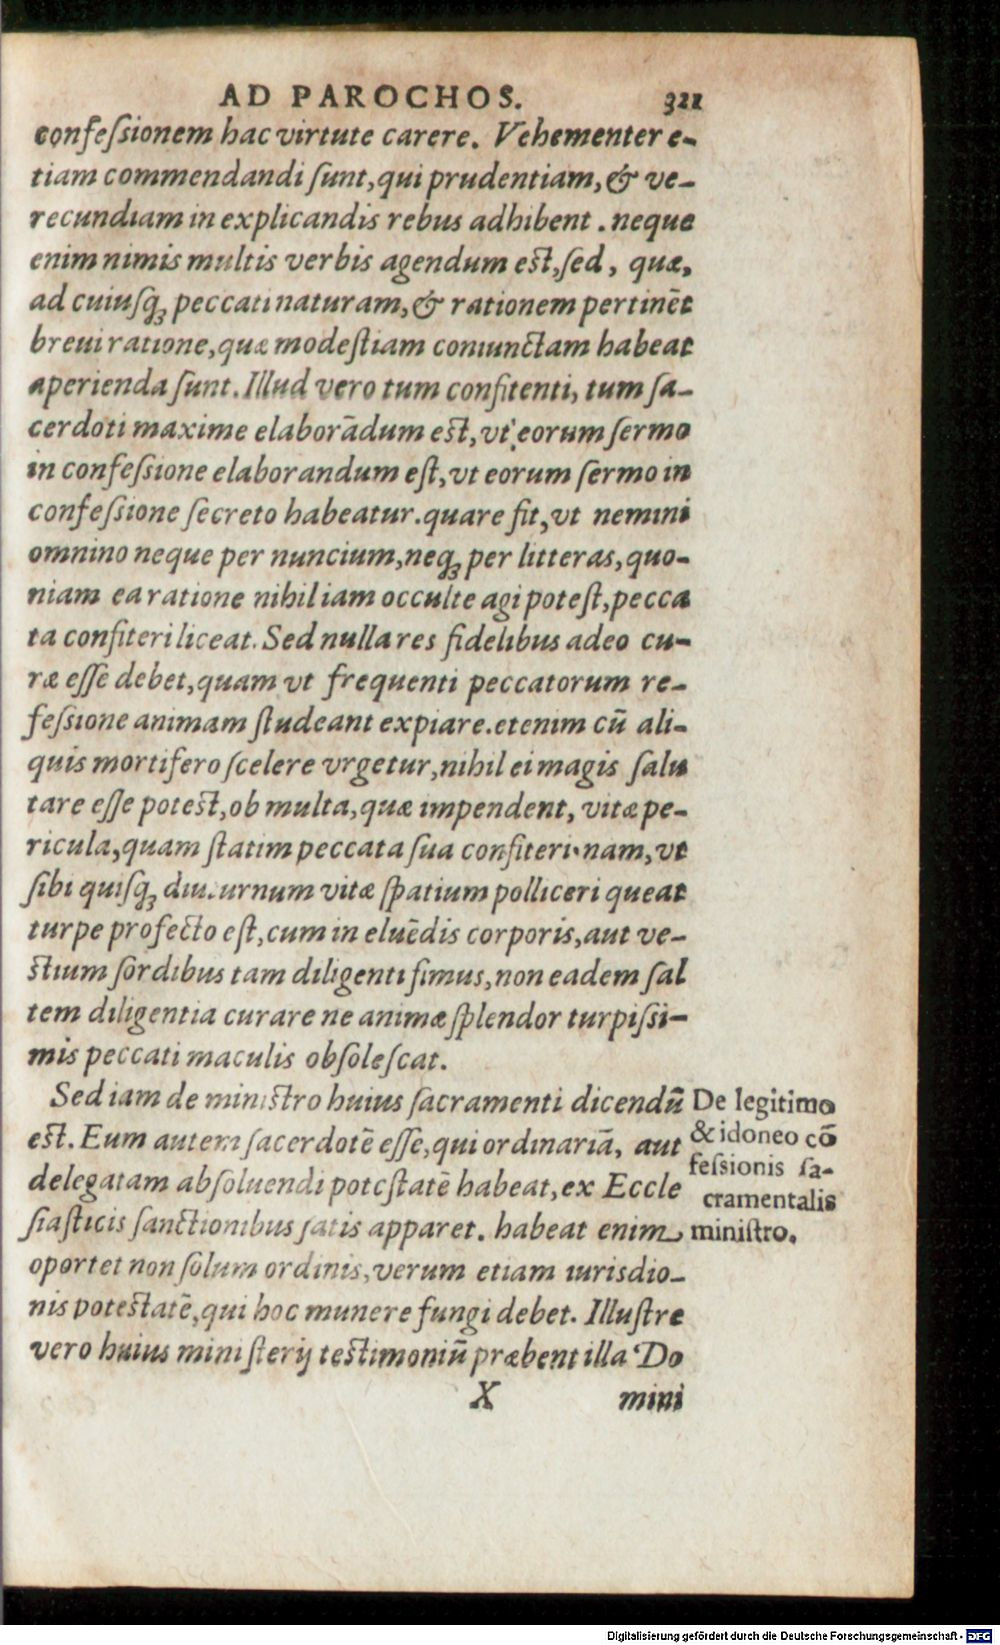 AD PAROCHOS. 321
confeſsionem hac virtute carere. Vehementer e-
tiam commendandi ſunt, qui prudentiam, & ve-
recundiam in explicandis rebus adhibent. neque
enim nimis multis verbis agendum est, ſed, quæ,
ad cuiuſq; peccati naturam, & rationem pertinēt
breui ratione, quæ modeſtiam coniunctam habeat
aperienda ſunt. Illud vero tum confitenti, tum ſa-
cerdoti maxime elaborādum est, vt eorum ſermo
in confeſsione elaborandum eſt, vt eorum ſermo in
confeſsione ſecreto habeatur. quare fit, vt nemini
omnino neque per nuncium, neq; per litteras, quo-
niam ea ratione nihil iam occulte agi poteſt, pecca
ta confiteri liceat. Sed nulla res fidelibus adeo cu-
ræ eſſe debet, quam vt frequenti peccatorum re-
feſsione animam ſtudeant expiare. etenim cū ali-
quis mortifero ſcelere vrgetur, nihil ei magis ſalu
tare eſſe potest, ob multa, quæ impendent, vitæ pe-
ricula, quam ſtatim peccata ſua confiteri. nam, vt
ſibi quiſq; diuturnum vitæ ſpatium polliceri queat
turpe profecto eſt, cum in eluēdis corporis, aut ve-
stium ſordibus tam diligenti ſimus, non eadem ſal
tem diligentia curare ne animæ ſplendor turpiſsi-
mis peccati maculis obſoleſcat.
Sed iam de ministro huius ſacramenti dicendū
est. Eum autem ſacerdotē eſſe, qui ordinariā, aut
delegatam abſoluendi poteſtatē habeat, ex Eccle
ſiaſticis ſanctionibus ſatis apparet. habeat enim
oportet non ſolum ordinis, verum etiam iurisdio-
nis potestatē, qui hoc munere fungi debet. Illuſtre
vero huius miniſterij testimoniū præbent illa Do
De legitimo
& idoneo cō
feſsionis ſa-
cramentalis
miniſtro.
X mini
Digitalisierung gefördert durch die Deutsche Forschungsgemeinschaft - DFG